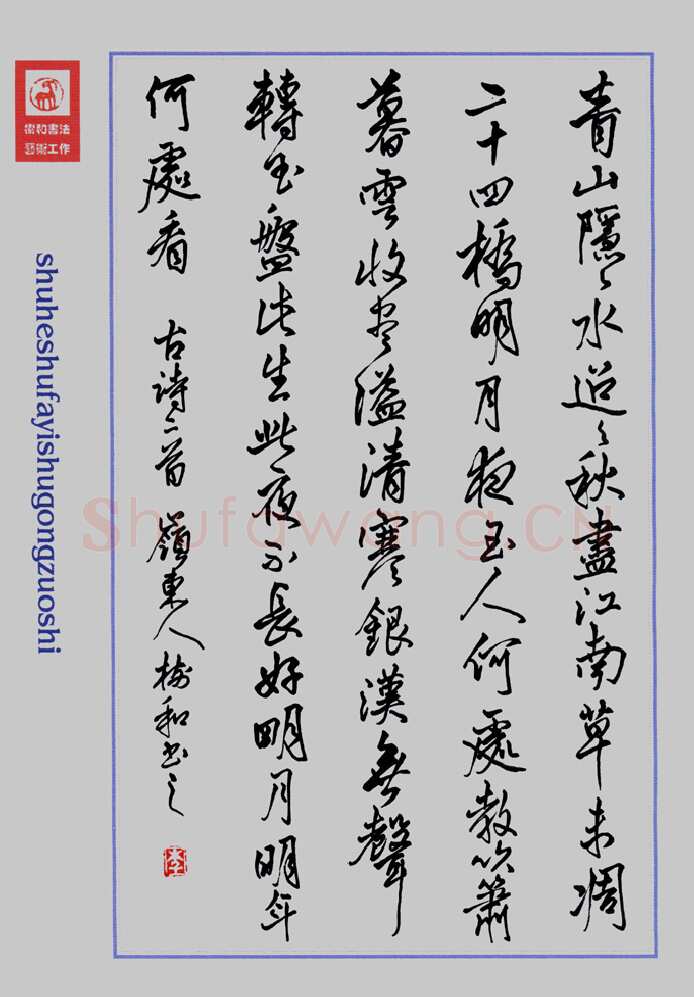 青山隱〻水迢〻秋盡江南草未凋
二十四橋明月夜玉人何處教吹簫
暮雲收尽溢清寒銀漢無聲
轉玉盤此生此夜不長好明月明年
何處看 古詩二首 嶺東人樹和书之
李
樹和書法
藝術工作
shuheshufayishugongzuoshi
Shufawang.CN